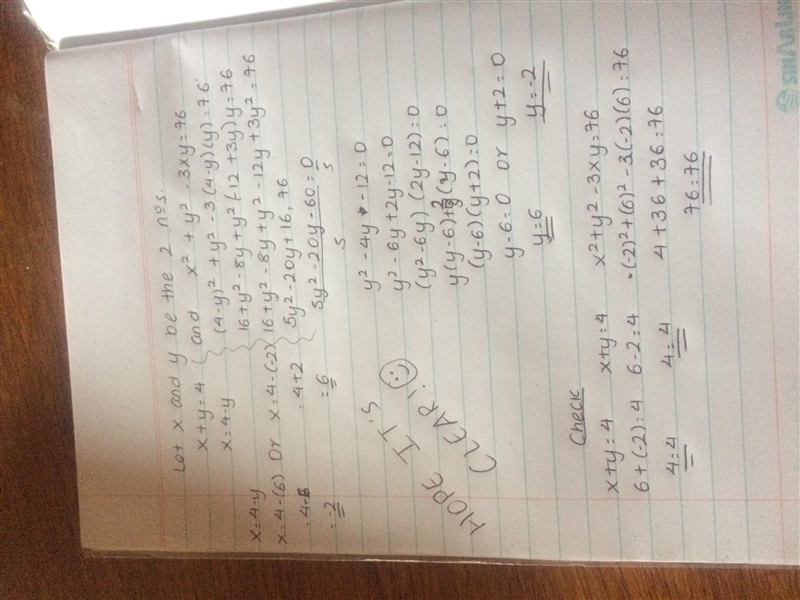 Let x and y be the 2 nos.
x+y=4 and x²+y²-3xy=76
x=4-y (4-y)²+y²-3(4-y)(y)=76
16+y²-8y+y²(-12+3y)y=76
x=4-y 16+y²-8y+y²-12y+3y²=76
x=4-(6) Or x=4-(-2)
=4-6 =4+2
=-2 =6
5y²-20y+16=76
5y²-20y-60=0
5 5
y²-4y-12=0
y²-6y+2y-12=0
(y²-6y)(2y-12)=0
y(y-6)+2(y-6)=0
(y-6)(y+2)=0
y-6=0 or y+2=0
y=6 y=-2
HOPE IT'S
CLEAR!
Check
x+y=4 x+y=4 x²+y²-3xy=76
6+(-2)=4 6-2=4 (-2)²+(6)²-3(-2)(6)=76
4=4 4=4 4+36+36=76
76=76